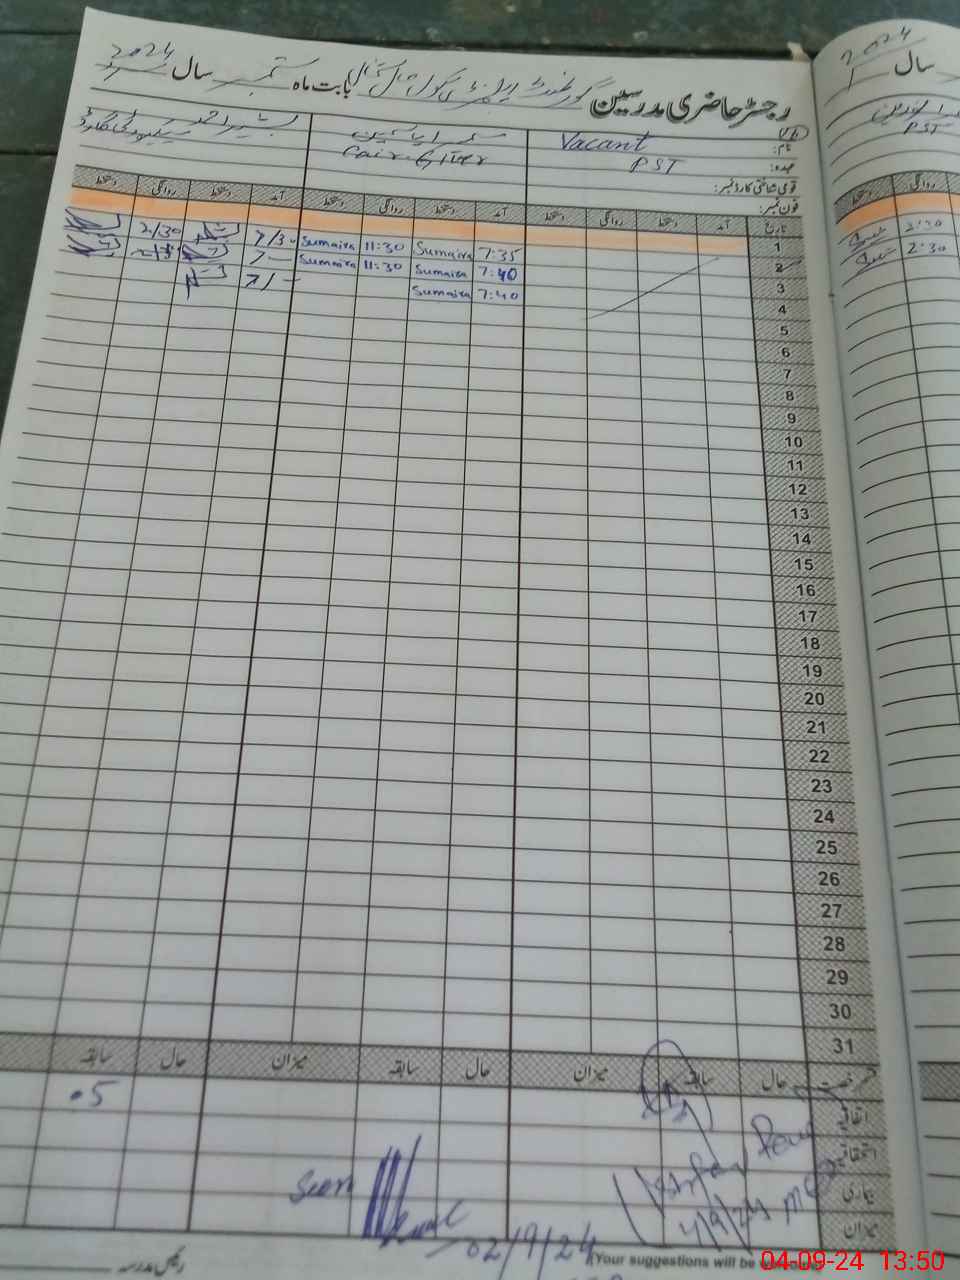 رجسٹر حاضری مدرسین گورنمنٹ بابت ماہ ستمبر سال 2024
سال 2024
نام: Vacant
عہدہ: PST
Cair Giver
بشیر احمد
سیکیورٹی گارڈ
PST
قومی شناختی کارڈ نمبر:
فون نمبر:
تاریخ آمد دستخط روانگی دستخط آمد دستخط روانگی دستخط آمد دستخط روانگی دستخط
دستخط روانگی
1 7:35 Sumaira 11:30 Sumaira 7/30 2/30
2 7:40 Sumaira 11:30 Sumaira
3 7:40 Sumaira
2:30
2:30
4
5
6
7
8
9
10
11
12
13
14
15
16
17
18
19
20
21
22
23
24
25
26
27
28
29
30
31
رخصت حال سابقہ میزان حال سابقہ میزان حال سابقہ
اتفاقیہ 05
استحقاقیہ
بیماری
میزان
4/9/24
02/9/24
(Your suggestions will be
رئیس مدرسہ
04-09-24 13:50